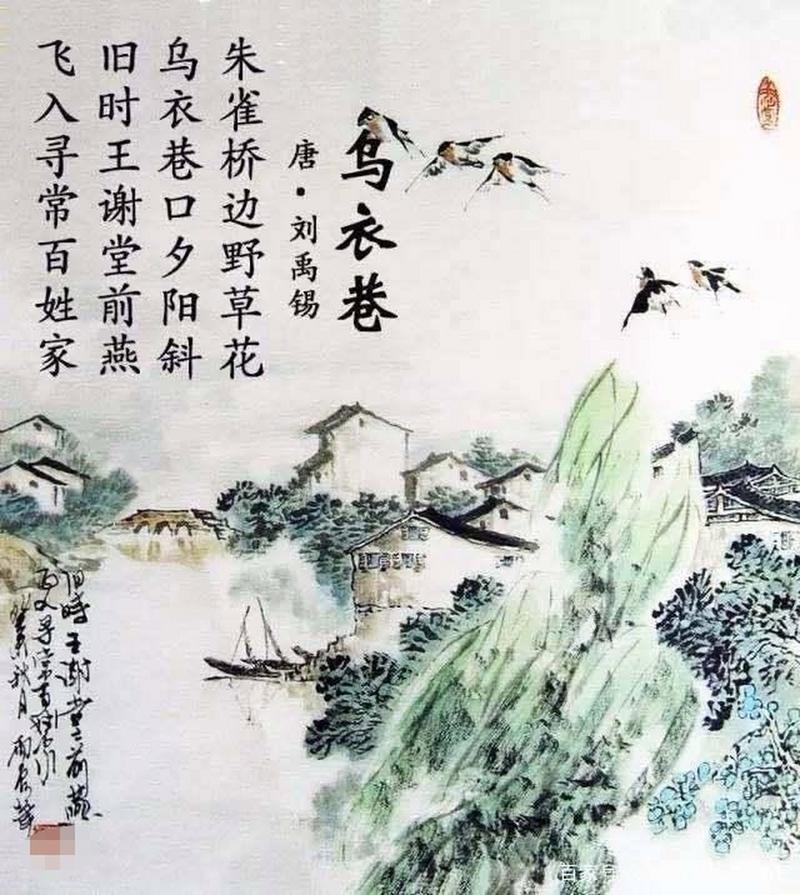 乌衣巷
唐·刘禹锡
朱雀桥边野草花
乌衣巷口夕阳斜
旧时王谢堂前燕
飞入寻常百姓家
旧時王谢堂前燕
飞入寻常百姓家